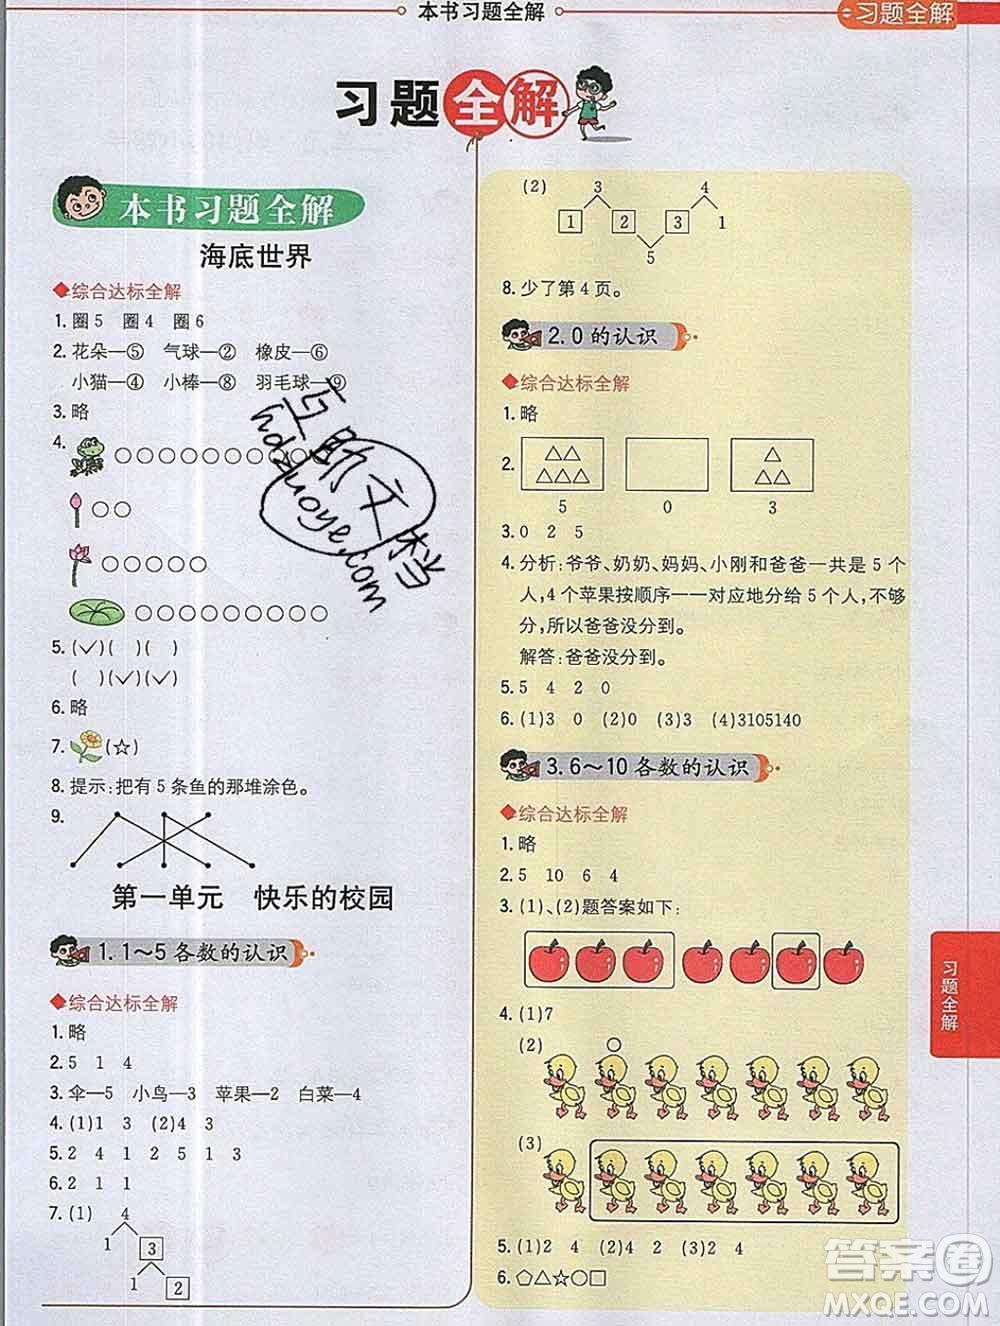 本书习题全解
习题全解
习题全解
本书习题全解
海底世界
综合达标全解
1. 圈 5 圈 4 圈 6
2. 花朵—⑤ 气球—② 橡皮—⑥
小猫—④ 小棒—⑧ 羽毛球—⑨
3. 略
4.
5. (✓)( )( )
( )(✓)(✓)
6. 略
7. (☆)
8. 提示:把有 5 条鱼的那堆涂色。
9.
第一单元 快乐的校园
1. 1～5 各数的认识
综合达标全解
1. 略
2. 5 1 4
3. 伞—5 小鸟—3 苹果—2 白菜—4
4. (1)1 3 (2)4 3
5. 2 4 1 2 5 1 3
6. 2 1 1
7. (1) 4
1 3
1 2
(2) 3 4
1 2 3 1
5
8. 少了第 4 页。
2. 0 的认识
综合达标全解
1. 略
2.
5 0 3
3. 0 2 5
4. 分析:爷爷、奶奶、妈妈、小刚和爸爸一共是 5 个
人,4 个苹果按顺序一一对应地分给 5 个人,不够
分,所以爸爸没分到。
解答:爸爸没分到。
5. 5 4 2 0
6. (1)3 0 (2)0 (3)3 (4)3105140
3. 6～10 各数的认识
综合达标全解
1. 略
2. 5 10 6 4
3. (1)、(2)题答案如下:
4. (1)7
(2)
(3)
5. (1)2 4 (2)4 2 (3)2 4
6. ⬠△☆○□
习题全解
互助文档
hdzuoye.com
答案圈
MXQE.COM